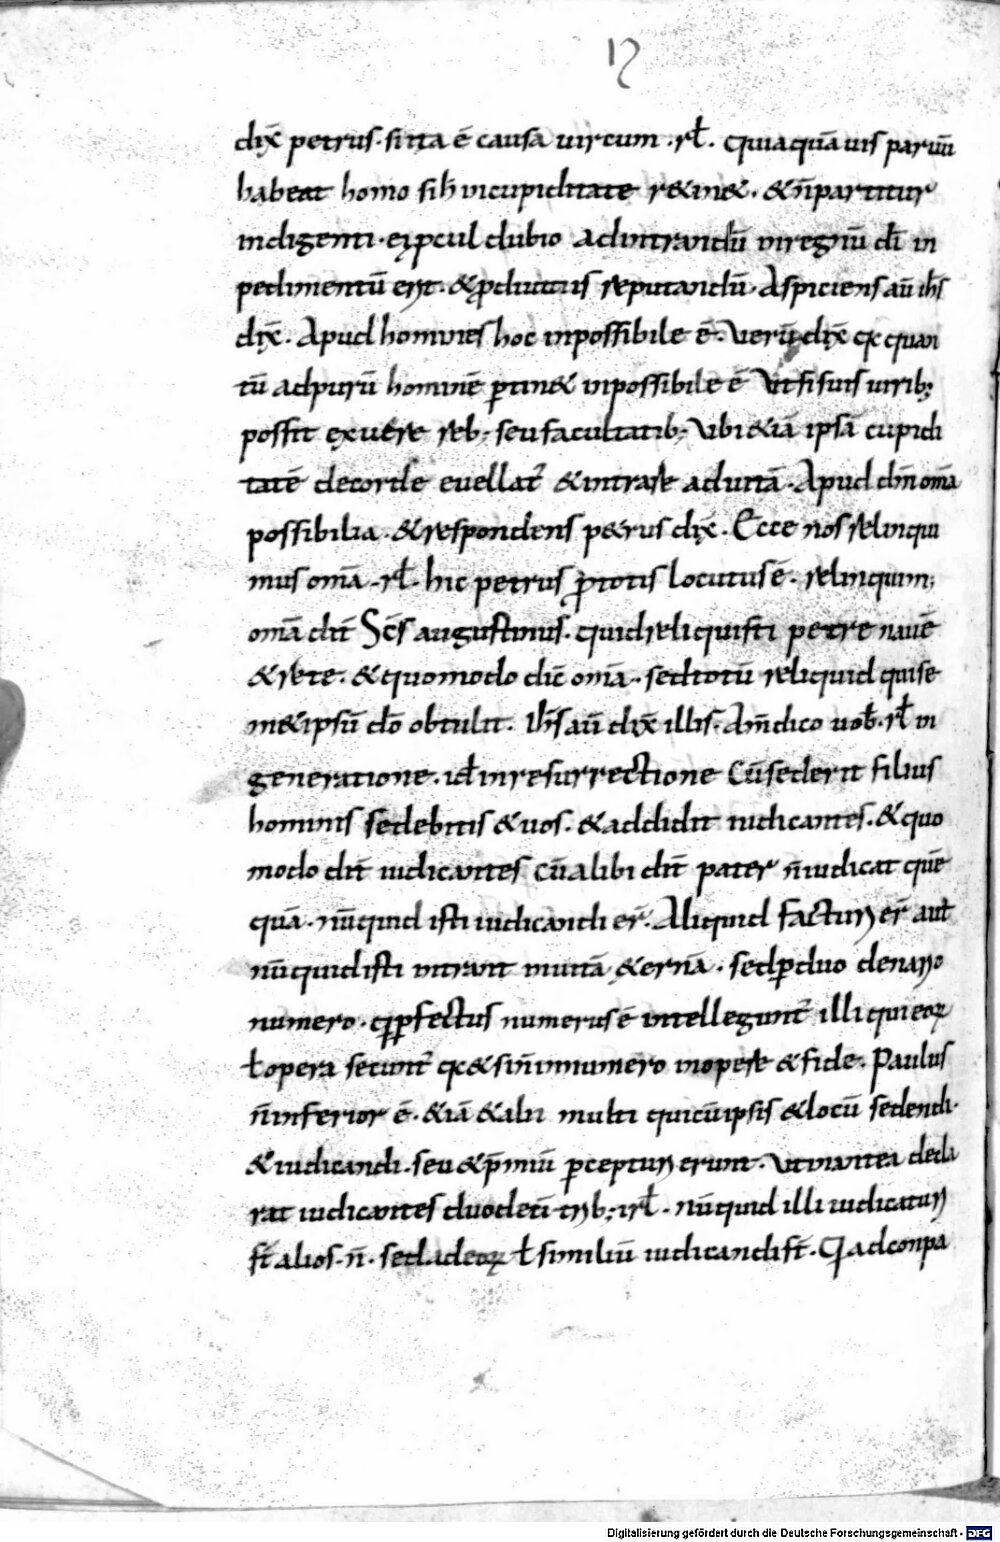 17
dix̄ petrus. si ita ē causa uir cum .rł. quia quāuis parūu
habeat homo sibi in cupiditate retinet. & n̄ partitur
indigenti. ex pcul dubio ad intrandū in regnū dī in
pedimentū erit. & pdiuitiis reputandū. Aspiciens aū ihs
dix̄. Apud homines hoc inpossibile ē. Verū dix̄ qx quan
tū ad purū hominē ptinet inpossibile ē Vt si suis uirib;
possit exuere reb; seu facultatib; Vbi &iā ipsā cupidi
tatē de corde euellat̄ & intrare ad uitā. Apud dm̄ omā
possibilia. & respondens petrus dix̄. Ecce nos relinqui
mus omā. rł. hic petrus p totis locutus ē. relinquim;
omā dit̄ Scs̄ augustinus. quid reliquisti petre nauē
& rete. & quomodo dic̄ omā. sed totū reliquid qui se
met ipsū do obtulit. Ihs̄ aū dix̄ illis. Am̄ dico uob̄. rł in
generatione. id̄ in resurrectione Cū sederit filius
hominis sedebitis & uos. & addidit iudicantes. & quo
modo dit̄ iudicantes cū alibi dit̄ pater n̄ iudicat quē
quā. nūquid isti iudicandi er̄. Aliquid facturi er̄ aut̄
nūquid isti intrant in uitā &ernā. sed p duo denario
numero. qp pfectus numerus ē intellegunt̄ illi qui eoꝝ
ł opera secunt̄ qx & sūn in numero in opere & fide. Paulus
n̄ inferior ē. &iā & alii multi qui cū ipsis & locū sedendi.
& iudicandi. seu & pmiū pcepturi erunt. Vt in antea decla
rat iudicantes duodeci trib; irł. nūquid illi iudicaturi
st̄ alios. n̄. sed ad eoꝝ ł similiū iudicandi st̄. Q ad conpa
Digitalisierung gefördert durch die Deutsche Forschungsgemeinschaft - DFG